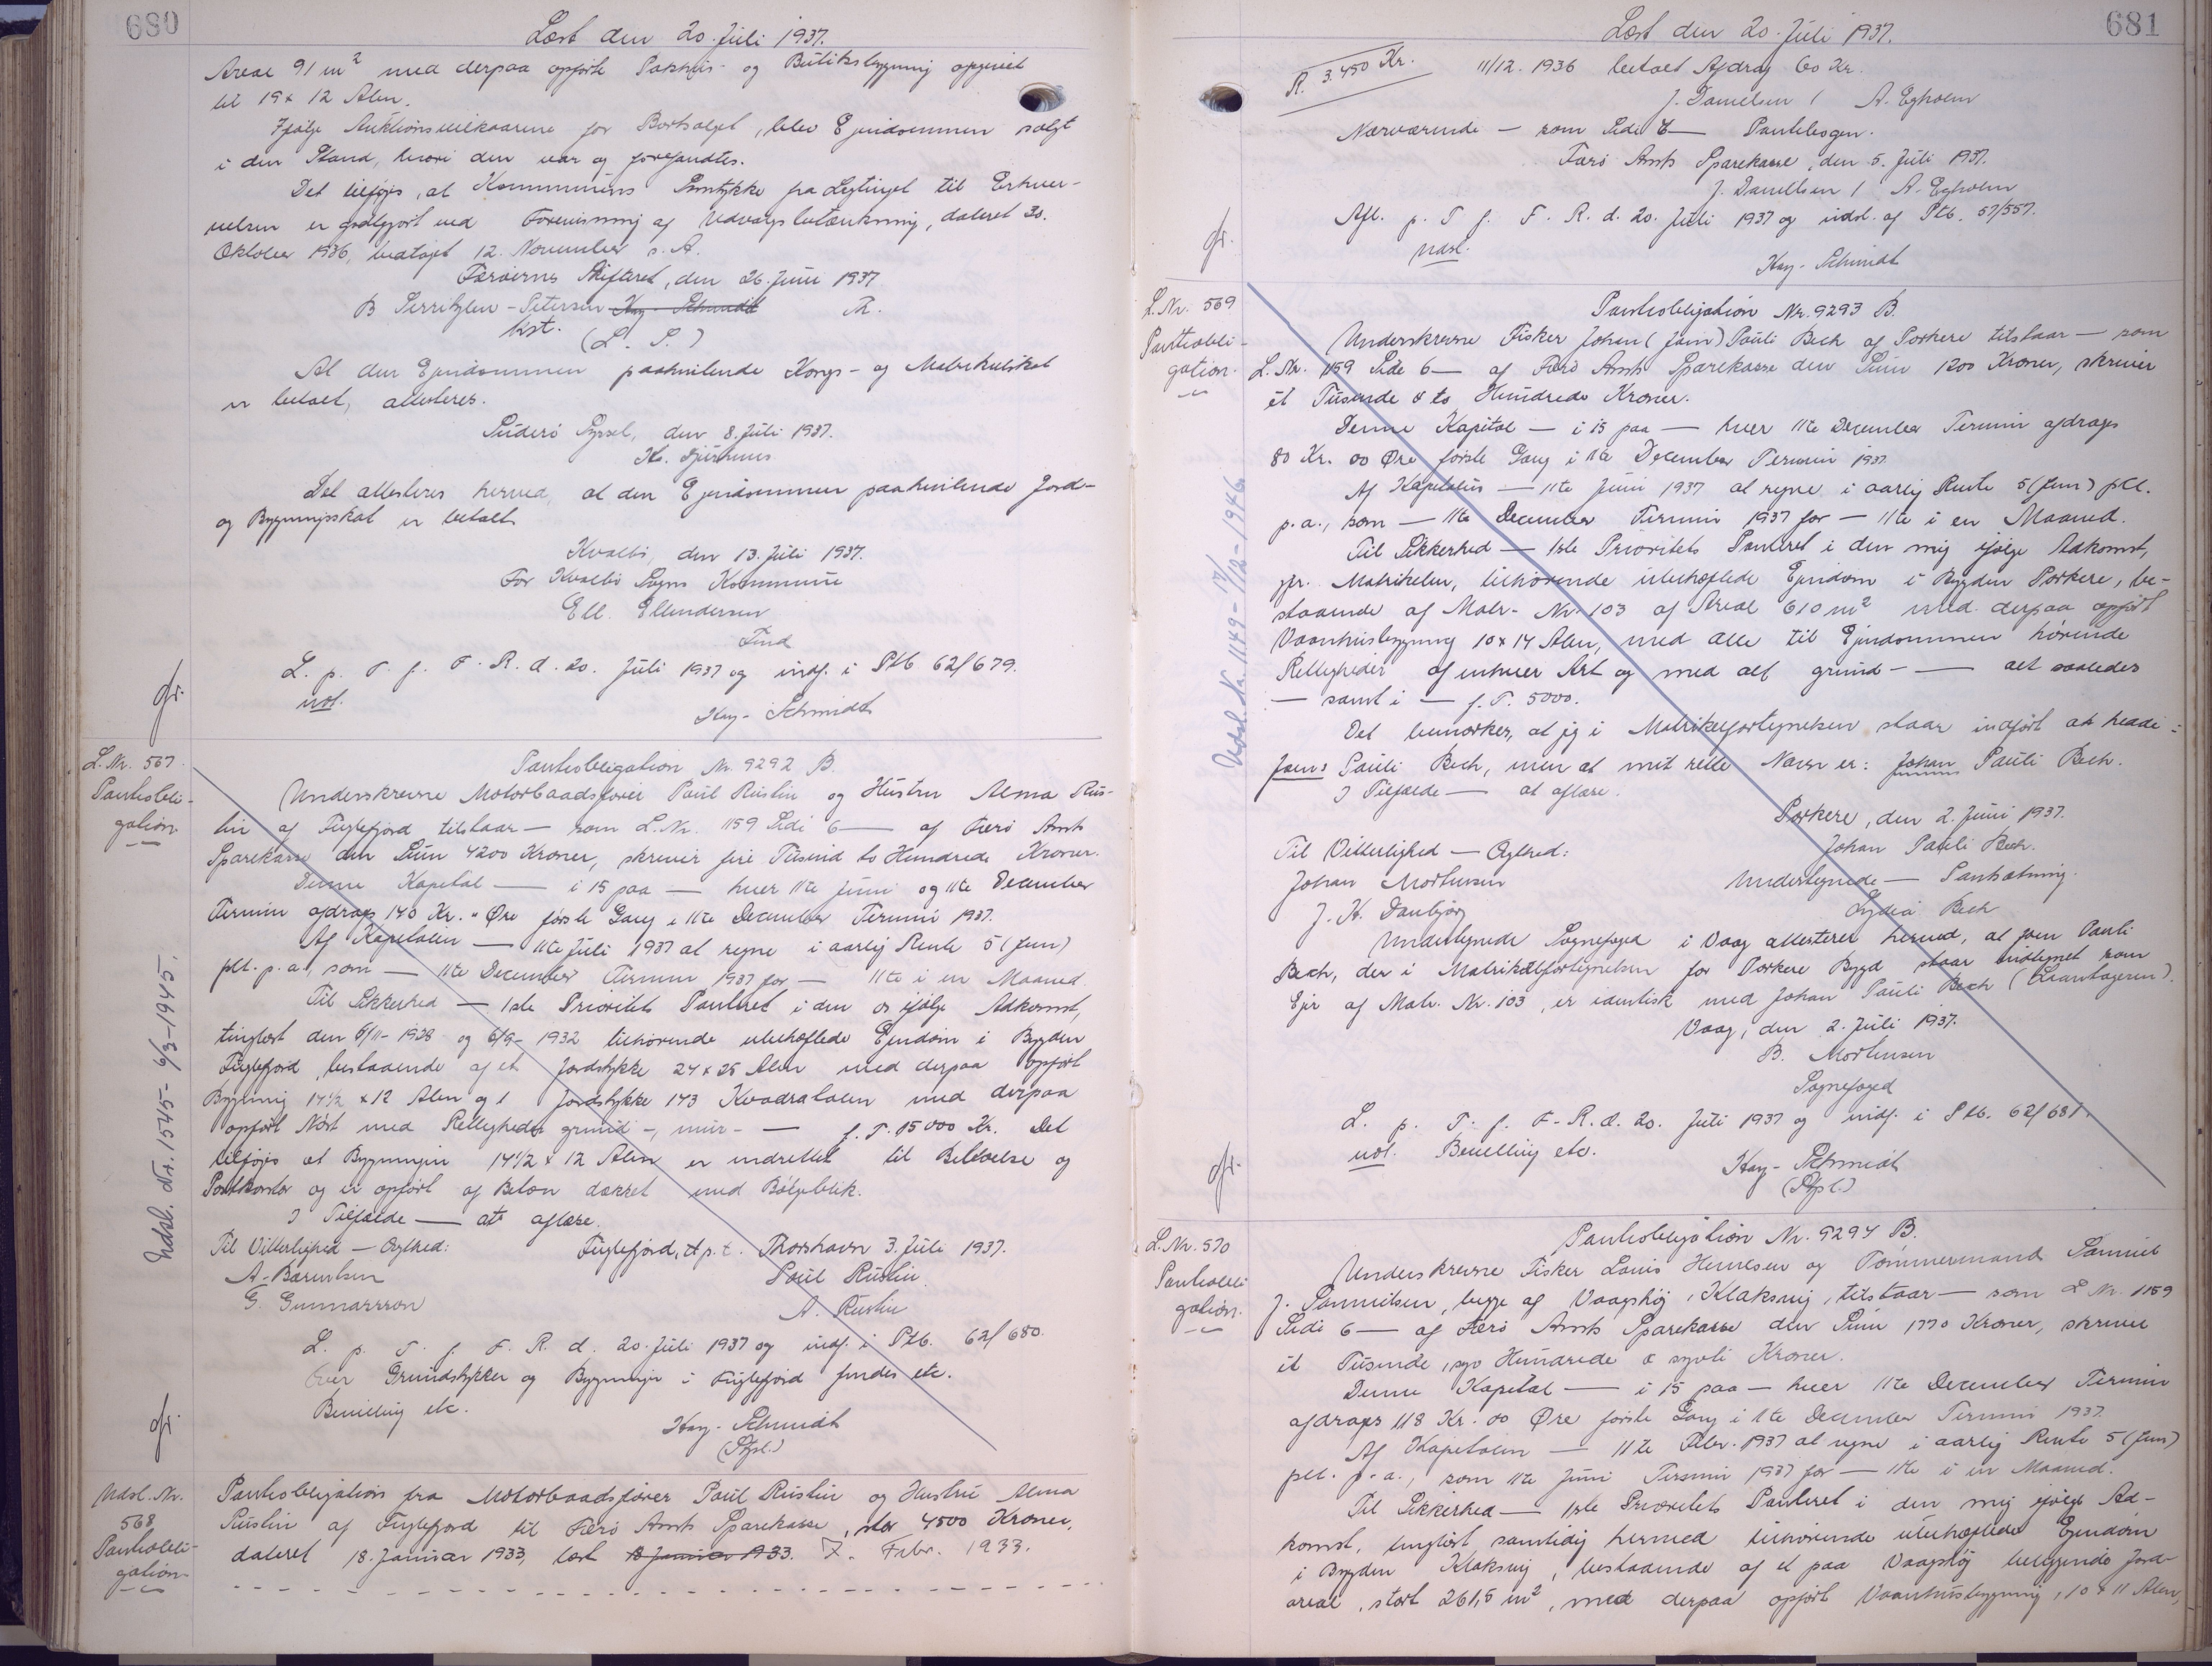 680
Læst den 20. Juli 1937.
Areal 91 m² med derpaa opførte Pakhus- og Butiksbygning opgivet
til 19 x 12 Alen.
Ifølge Auktionsvilkaarene for Bortsalget, blev Ejendommen solgt
i den Stand, hvori den var og forefandtes.
Det tilføjes, at Kommunens Samtykke fra Lagtinget til Erhver-
velsen er godtgjort ved Forevisning af Udvalgsbetænkning, dateret 30.
Oktober 1936, vedtaget 12. November s. A.
Færøernes Skifteret, den 26. Juni 1937
B Serritzlen-Petersen Kay-Schmidt Th.
kst. (L. S.)
At den Ejendommen paahvilende Kongs- og Matrikulskat
er betalt, attesteres.
Suderø Syssel, den 8. Juli 1937.
Det attesteres herved, at den Ejendommen paahvilende Jord-
og Bygningsskat er betalt
Kvalbø, den 13. Juli 1937.
For Kvalbø Sogns Kommune
Ell. Ellendersen
Fmd
L. p. T. f. F. R. d. 20. Juli 1937 og indf. i Ptb 62/679.
udl.
Kay-Schmidt
gr.
L. Nr. 567.
Panteobli-
gation
Panteobligation Nr. 9292 B.
Underskrevne Motorbaadsfører Poul Rustin og Hustru Alma Rus-
tin af Fuglefjord tilstaar — som L. Nr. 1159 Side 6 — af Færø Amts
Sparekasse den Sum 4200 Kroner, skriver fire Tusind to Hundrede Kroner.
Denne Kapital — i 15 paa — hver 11te Juni og 11te December
Termin afdrages 140 Kr. " Øre første Gang i 11te December Termin 1937.
Af Kapitalen — 11te Juli 1937 at regne i aarlig Rente 5 (fem)
pct. p. a., som — 11te December Termin 1937 for — 11te i en Maaned.
Til Sikkerhed — 1ste Prioritets Panteret i den os ifølge Adkomst,
tinglæst den 6/11-1928 og 6/9-1932 tilhørende ubehæftede Ejendom i Bygden
Fuglefjord, bestaaende af et Jordstykke 24 x 25 Alen med derpaa opført
Bygning 14½ x 12 Alen og 1 Jordstykke 143 Kvadratalen med derpaa
opført Nøst med Rettigheder grund-, mur- — f. T. 15000 Kr. Det
tilføjes at Bygningen 14½ x 12 Alen er indrettet til Beboelse og
Postkontor og er opført af Beton dækket med Bølgeblik.
I Tilfælde — at aflæse.
Til Vitterlighed — Ægthed: Fuglefjord, d. p. t. Thorshavn 3. Juli 1937.
A. Bærentsen Poul Rustin
G. Gunnarsson A. Rustin
L. p. T. f. F. R. d. 20. Juli 1937 og indf. i Ptb. 62/680.
over Grundstykker og Bygninger i Fuglefjord findes etc.
Bevilling etc.
Kay-Schmidt
(Sfpl.)
gr.
Udsl. Nr. 1545 - 6/3-1945.
Udsl. Nr.
568
Panteobli-
gation
Panteobligation fra Motorbaadsfører Poul Rustin og Hustru Alma
Rustin af Fuglefjord til Færø Amts Sparekasse, stor 4500 Kroner,
dateret 18. Januar 1933, læst 18 Januar 1933. 7. Febr. 1933.
681
Læst den 20. Juli 1937.
R. 3.450 Kr.
11/12. 1936 betalt Afdrag 60 Kr.
J. Danielsen / A. Egholm
Nærværende — som Side 6 — Pantebogen.
Færø Amts Sparekasse, den 5. Juli 1937.
J. Danielsen / A. Egholm
Afl. p. T f. F. R. d. 20. Juli 1937 og udsl. af Ptb. 57/557.
udsl.
Kay-Schmidt
gr.
L. Nr. 569
Panteobli-
gation.
Panteobligation Nr. 9293 B.
Underskrevne Fisker Johan (Joen) Pauli Bech af Porkere tilstaar — som
L. Nr. 1159 Side 6 — af Færø Amts Sparekasse den Sum 1200 Kroner, skriver
et Tusinde & to Hundrede Kroner.
Denne Kapital — i 15 paa — hver 11te December Termin afdrages
80 Kr. 00 Øre første Gang i 11te December Termin 1937
Af Kapitalen — 11te Juni 1937 at regne i aarlig Rente 5 (fem) pCt.
p. a., som — 11te December Termin 1937 for — 11te i en Maaned.
Til Sikkerhed — 1ste Prioritets Panteret i den mig ifølge Adkomst,
jfr. Matrikelen, tilhørende ubehæftede Ejendom i Bygden Porkere, be-
staaende af Matr. Nr. 103 af Areal 610 m² med derpaa opført
Vaanhusbygning 10 x 14 Alen, med alle til Ejendommen hørende
Rettigheder af enhver Art og med alt grund- — alt saaledes
— samt i — f. T. 5000.
Det bemærkes, at jeg i Matrikelfortegnelsen staar indført at hedde:
Joen: Pauli Bech, men at mit rette Navn er: Johan Pauli Bech.
I Tilfælde — at aflæse.
Porkere, den 2. Juni 1937.
Til Vitterlighed — Ægthed: Johan Pauli Bech.
Johan Mortensen Undertegnede — Pantsætning.
J. H. Danbjørg Lydia Bech
Undertegnede Sognefoged i Vaag attesterer herved, at Joen Pauli
Bech, der i Matrikelfortegnelsen for Porkere Bygd staar indtegnet som
Ejer af Matr. Nr. 103, er identisk med Johan Pauli Bech (Laantageren).
Vaag, den 2. Juli 1937.
B. Mortensen
Sognefoged
L. p. T. f. F. R. d. 20. Juli 1937 og indf. i Ptb. 62/681.
udl. Bevilling etc.
Kay-Schmidt
(Sfpl.)
gr.
Udsl. Nr. 1149 - 17/12-1946
L. Nr. 570
Panteobli-
gation.
Panteobligation Nr. 9294 B.
Underskrevne Fisker Louis Hermesen og Tømmermand Samuel
J. Samuelsen, begge af Vaagshøj, Klaksvig, tilstaar — som L Nr. 1159
Side 6 — af Færø Amts Sparekasse den Sum 1770 Kroner, skriver
et Tusinde, syv Hundrede & syvti Kroner.
Denne Kapital — i 15 paa — hver 11te December Termin
afdrages 118 Kr. 00 Øre første Gang i 11te December Termin 1937.
Af Kapitalen — 11te Febr. 1937 at regne i aarlig Rente 5 (fem)
pct. p. a., som 11te Juni Termin 1937 for — 11te i en Maaned.
Til Sikkerhed — 1ste Prioritets Panteret i den mig ifølge Ad-
komst, tinglæst samtidig hermed tilhørende ubehæftede Ejendom
i Bygden Klaksvig, bestaaende af et paa Vaagshøj beliggende Jord-
areal, stort 261,5 m², med derpaa opført Vaanhusbygning, 10 x 11 Alen,